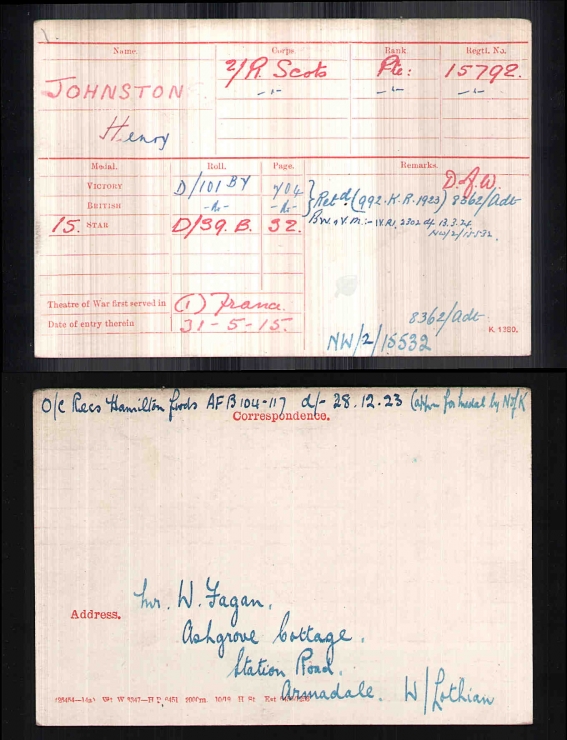 Name. Corps. Rank Regtl. No.
JOHNSTON 2/R. Scots Pte: 15792.
-"- -"-
Henry
Medal. Roll. Page. Remarks.
D. of W.
VICTORY D/101 BY 404 Retd. (992. K. R. 1923) 8362/Adt
BRITISH -"- -"- B.W. & V.M:- I.V. 2302 df 13.3.24
NW/2/15532
15. STAR D/39. B. 32.
Theatre of War first served in (1) France.
Date of entry therein 31-5-15.
8362/Adt
NW/2/15532
K. 1380.
O/C Recs Hamilton fwds AF B 104-117 d/- 28.12.23 (appn for medal by N/K
Correspondence.
Address.
Mr. W. Fagan.
Ashgrove Cottage.
Station Road.
Armadale. W/Lothian